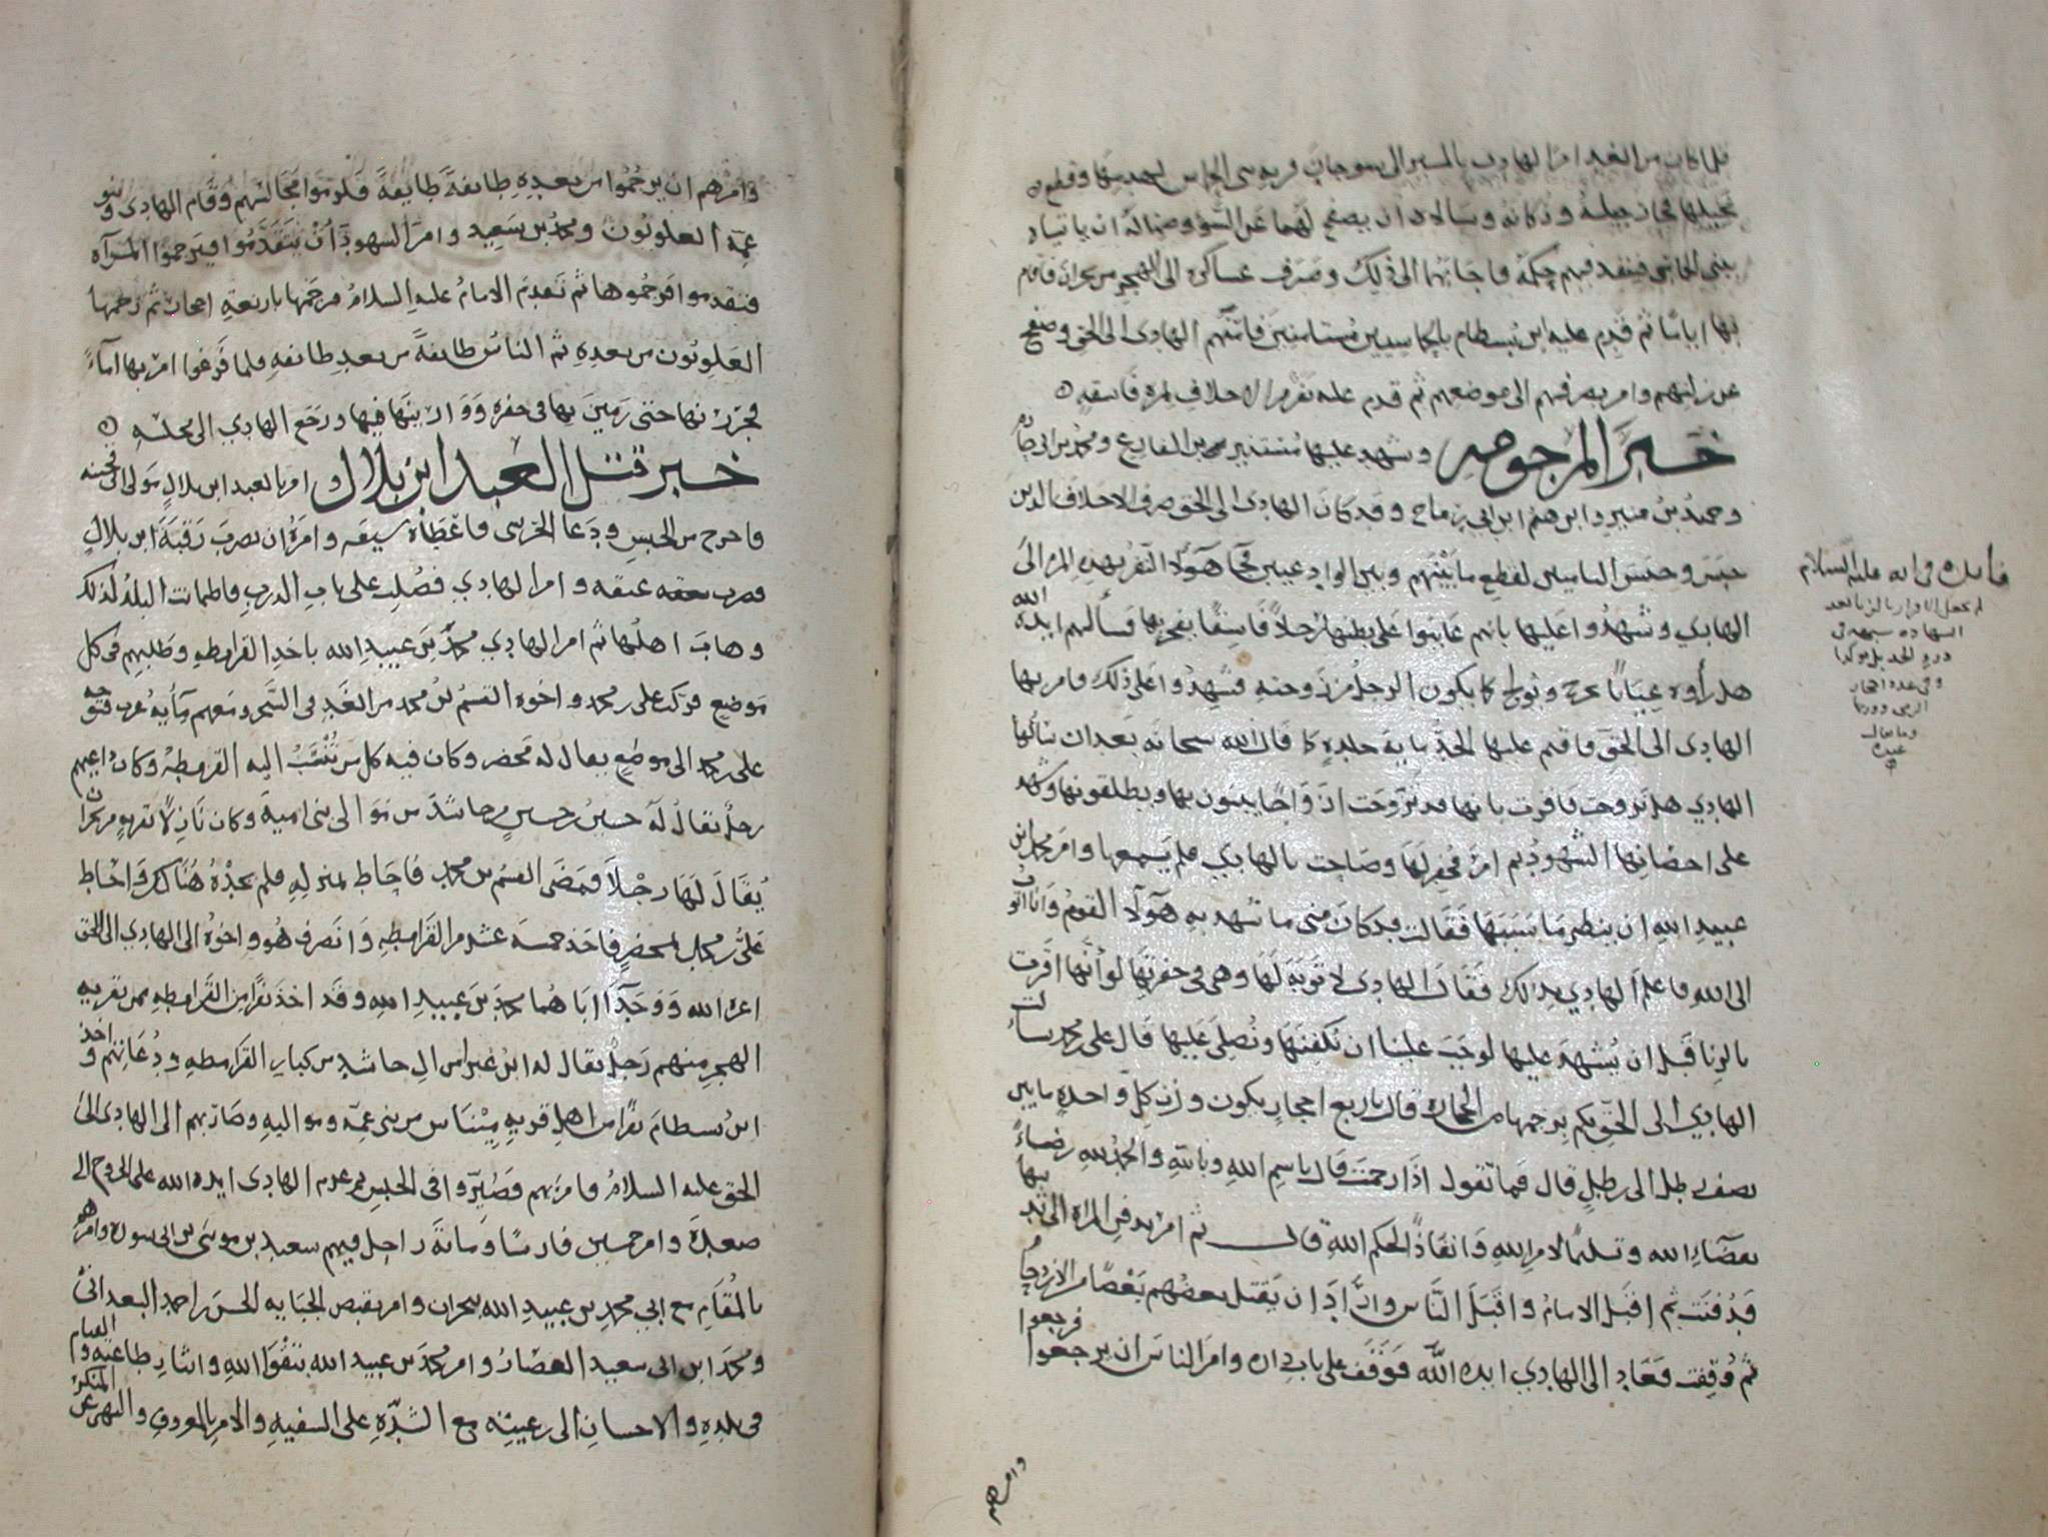 فلما كان من الغد امر الهادي بالمسير الى سوحان قرية بني الحماس ليهدمها وقطع
نخيلها فجاز جبلة وذكانه وسالاه ان يصفح لهما عن السو وضمنا له ان ياتياه
ببني الحماس فينفذ فيهم حكمه فاجابهما الى ذلك وصرف عساكره الى الهجر من نجران فاقام
بها اياما ثم قدم عليه ابن بسطام بالياميين مستامنين فامنهم الهادي الى الحق وصفح
عن زلتهم وامر بصرفهم الى موضعهم ثم قدم عليه نفر من الاحلاف بامرة فاسقه
خبر المرجومه وشهد عليها مستنير بن المفارع ومحمد بن ابي جاده
وحميد بن منير وابرهيم ابن ابي رماح وقد كان الهادي الى الحق صرف الاحلاف الذين
حبس وحبس الياميين لقطع ما بينهم وبين الوادعيين فجا هولاء النفر بهذه المراه الى
الهادي وشهدوا عليها بانهم عاينوا على بطنها رجلا فاسقا يفجر بها فسألهم ايده الله
هل رأوه عيانا يخرج ويولج كما يكون الرجل من زوجته فشهدوا على ذلك فامر بها
الهادي الى الحق فاقيم عليها الحد ماية جلده كما قال الله سبحانه بعد ان سألها
الهادي هل تزوجت فاقرت بانها قد تزوجت ازواجا يبنون بها ويطلقونها وشهد
على احصانها الشهود ثم امر فحفر لها وصاحت بالهادي فلم يسمعها وامر محمد ابن
عبيد الله ان ينظر ما سببها فقالت قد كان مني ما شهد به هولاء القوم وانا اتوب
الى الله فاعلم الهادي بذلك فقال الهادي لا توبة لها وهي في حفرتها لو أنها اقرت
بالزنا قبل ان يشهد عليها لوجب علينا ان نكفنها ونصلي عليها قال علي بن محمد سألت
الهادي الى الحق بكم يرجمها من الحجارة قال باربع احجار يكون وزن كل واحده ما بين
نصف رطل الى رطل قال فما تقول اذا رجمت قال باسم الله وبالله والحمد لله رضاءً
بقضاء الله وتسليما لامر الله وانفاذا لحكم الله قال ثم امر بدفن المراه الى ثديها
فدفنت ثم اقبل الامام واقبل الناس واذا ان يقتل بعضهم بعضا من الازدحام
ثم وقفت فعاد الى الهادي ايده الله فوقف على باب داره وامر الناس ان يرجعوا فرجعوا
وامرهم
فائدة في انه عليه السلام
لم يجعل الاقرار بالزنا بعد
الشهاده شبهه في
درو الحد بل موكدا
وفي عده احجار
الرمي ووزنها
وما يقال
عنده
وامرهم ان يرجموا من بعده طائفة طايفة فلزموا مجالسهم وقام الهادي وبنو
عمه العلويون ومحمد بن سعيد وامر الشهود أن يتقدموا فيرجموا المرآه
فتقدموا فرجموها ثم تقدم الامام عليه السلام فرجمها باربعة احجار ثم رجمها
العلويون من بعده ثم الناس طائفة من بعد طائفه فلما فرغوا امر بها امآءً
فجررنها حتى رمين بها في حفره ووارينها فيها ورجع الهادي الى مجلسه
خبر قتل العبد ابن بلال وامر بالعبد ابن بلال مولى
فاخرج من الحبس ودعا الحرسي فاعطاه سيفه وامره ان يضرب رقبة ابن بلال
فضرب عنقه وامر الهادي فصلب على باب الدرب فاطمانت البلد لذلك
وهاب اهلها ثم امر الهادي محمد بن عبيد الله باخذ القرامطه وطلبهم في كل
موضع فركب علي بن محمد واخوه القسم بن محمد من الغد في السحر ومعهم مأيه عرب فتوجه
علي بن محمد الى موضع يقال له محضر وكان فيه كل من يُنْسَبُ اليه القرمطة وكان داعيهم
رجل يقال له حسين بن حسين بن حاشد من موالي بني امية وكان نازلا بقرية من نجران
يُقال لها رجلا فمضى القسم بن محمد فاحاط بمنزله فلم يجده هناك واحاط
علي بن محمد بمحضر فاخذ خمسة عشر من القرامطه وانصرف هو واخوه الى الهادي الى الحق
اعزه الله ووجدا اباهما محمد بن عبيد الله وقد اخذ نفرا من القرامطه من قرية
الهجر منهم رجل يقال له ابن غبراس ال حاشد من كبار القرامطه ودعاتهم واخذ
ابن بسطام نفرا من اهل قرية ميناس من بني عمه ومواليه وصار بهم الى الهادي الى
الحق عليه السلام فامر بهم فصيروا في الحبس ثم عزم الهادي ايده الله على الخروج الى
صعدة وامر خمسين فارسا ومائة راجل فيهم سعيد بن موسى بن ابي سوره وامرهم
بالمقام مع ابي محمد بن عبيد الله بنجران وامر بقبض الجبايه الحسن بن احمد البغداني
ومحمد ابن ابي سعيد العصار وامر محمد بن عبيد الله بتقوا الله وايثار طاعته والقيام
في بلده والاحسان الى رعيته مع الشدة على السفيه والامر بالمعروف والنهي عن المنكر